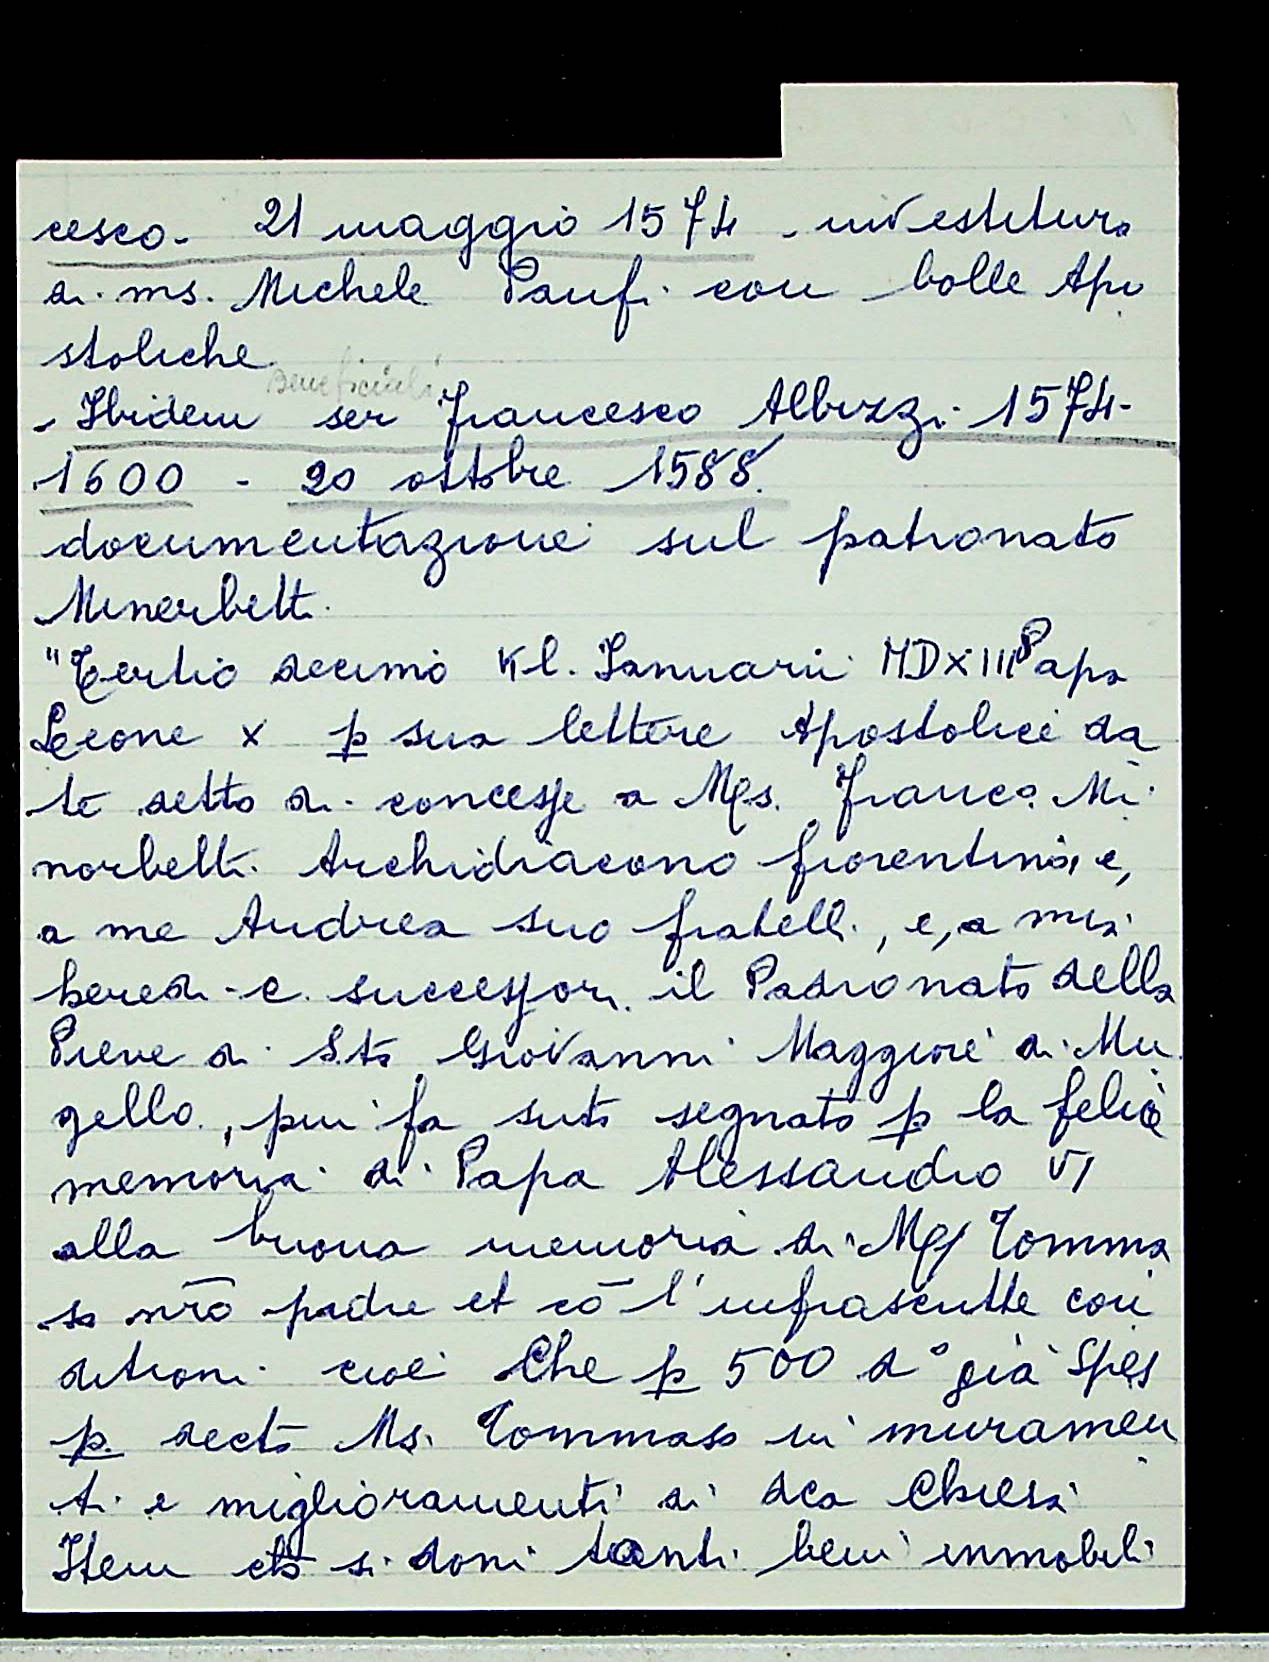 cesco. 21 maggio 1574. investitura
di ms. Michele Panfi con bolle Apo
stoliche.
beneficiali
- Ibidem ser Francesco Albizzi 1574-
1600 - 20 ottobre 1588.
documentazione sul patronato
Minerbetti.
"Tertio decimo Kl. Januarii MDXIII Papa
Leone X p sua lettere Apostolice da
te detto di concesse a Mss. Franc.o Mi
norbetti Archidiacono fiorentino, e,
a me Andrea suo fratello, e, a mia
heredi e successori il Padronato della
Pieve di S.to Giovanni Maggiore di Mu
gello, piu fa suto segnato p la felice
memoria di Papa Alessandro VI
alla buona memoria di Ms Tomma
so nro padre et co l'infrascritte con
ditioni cioè Che p 500 d° già spesi
p decto Ms. Tommaso in muramen
ti e miglioramenti di dca Chiesa
Item che si doni tanti beni immobili